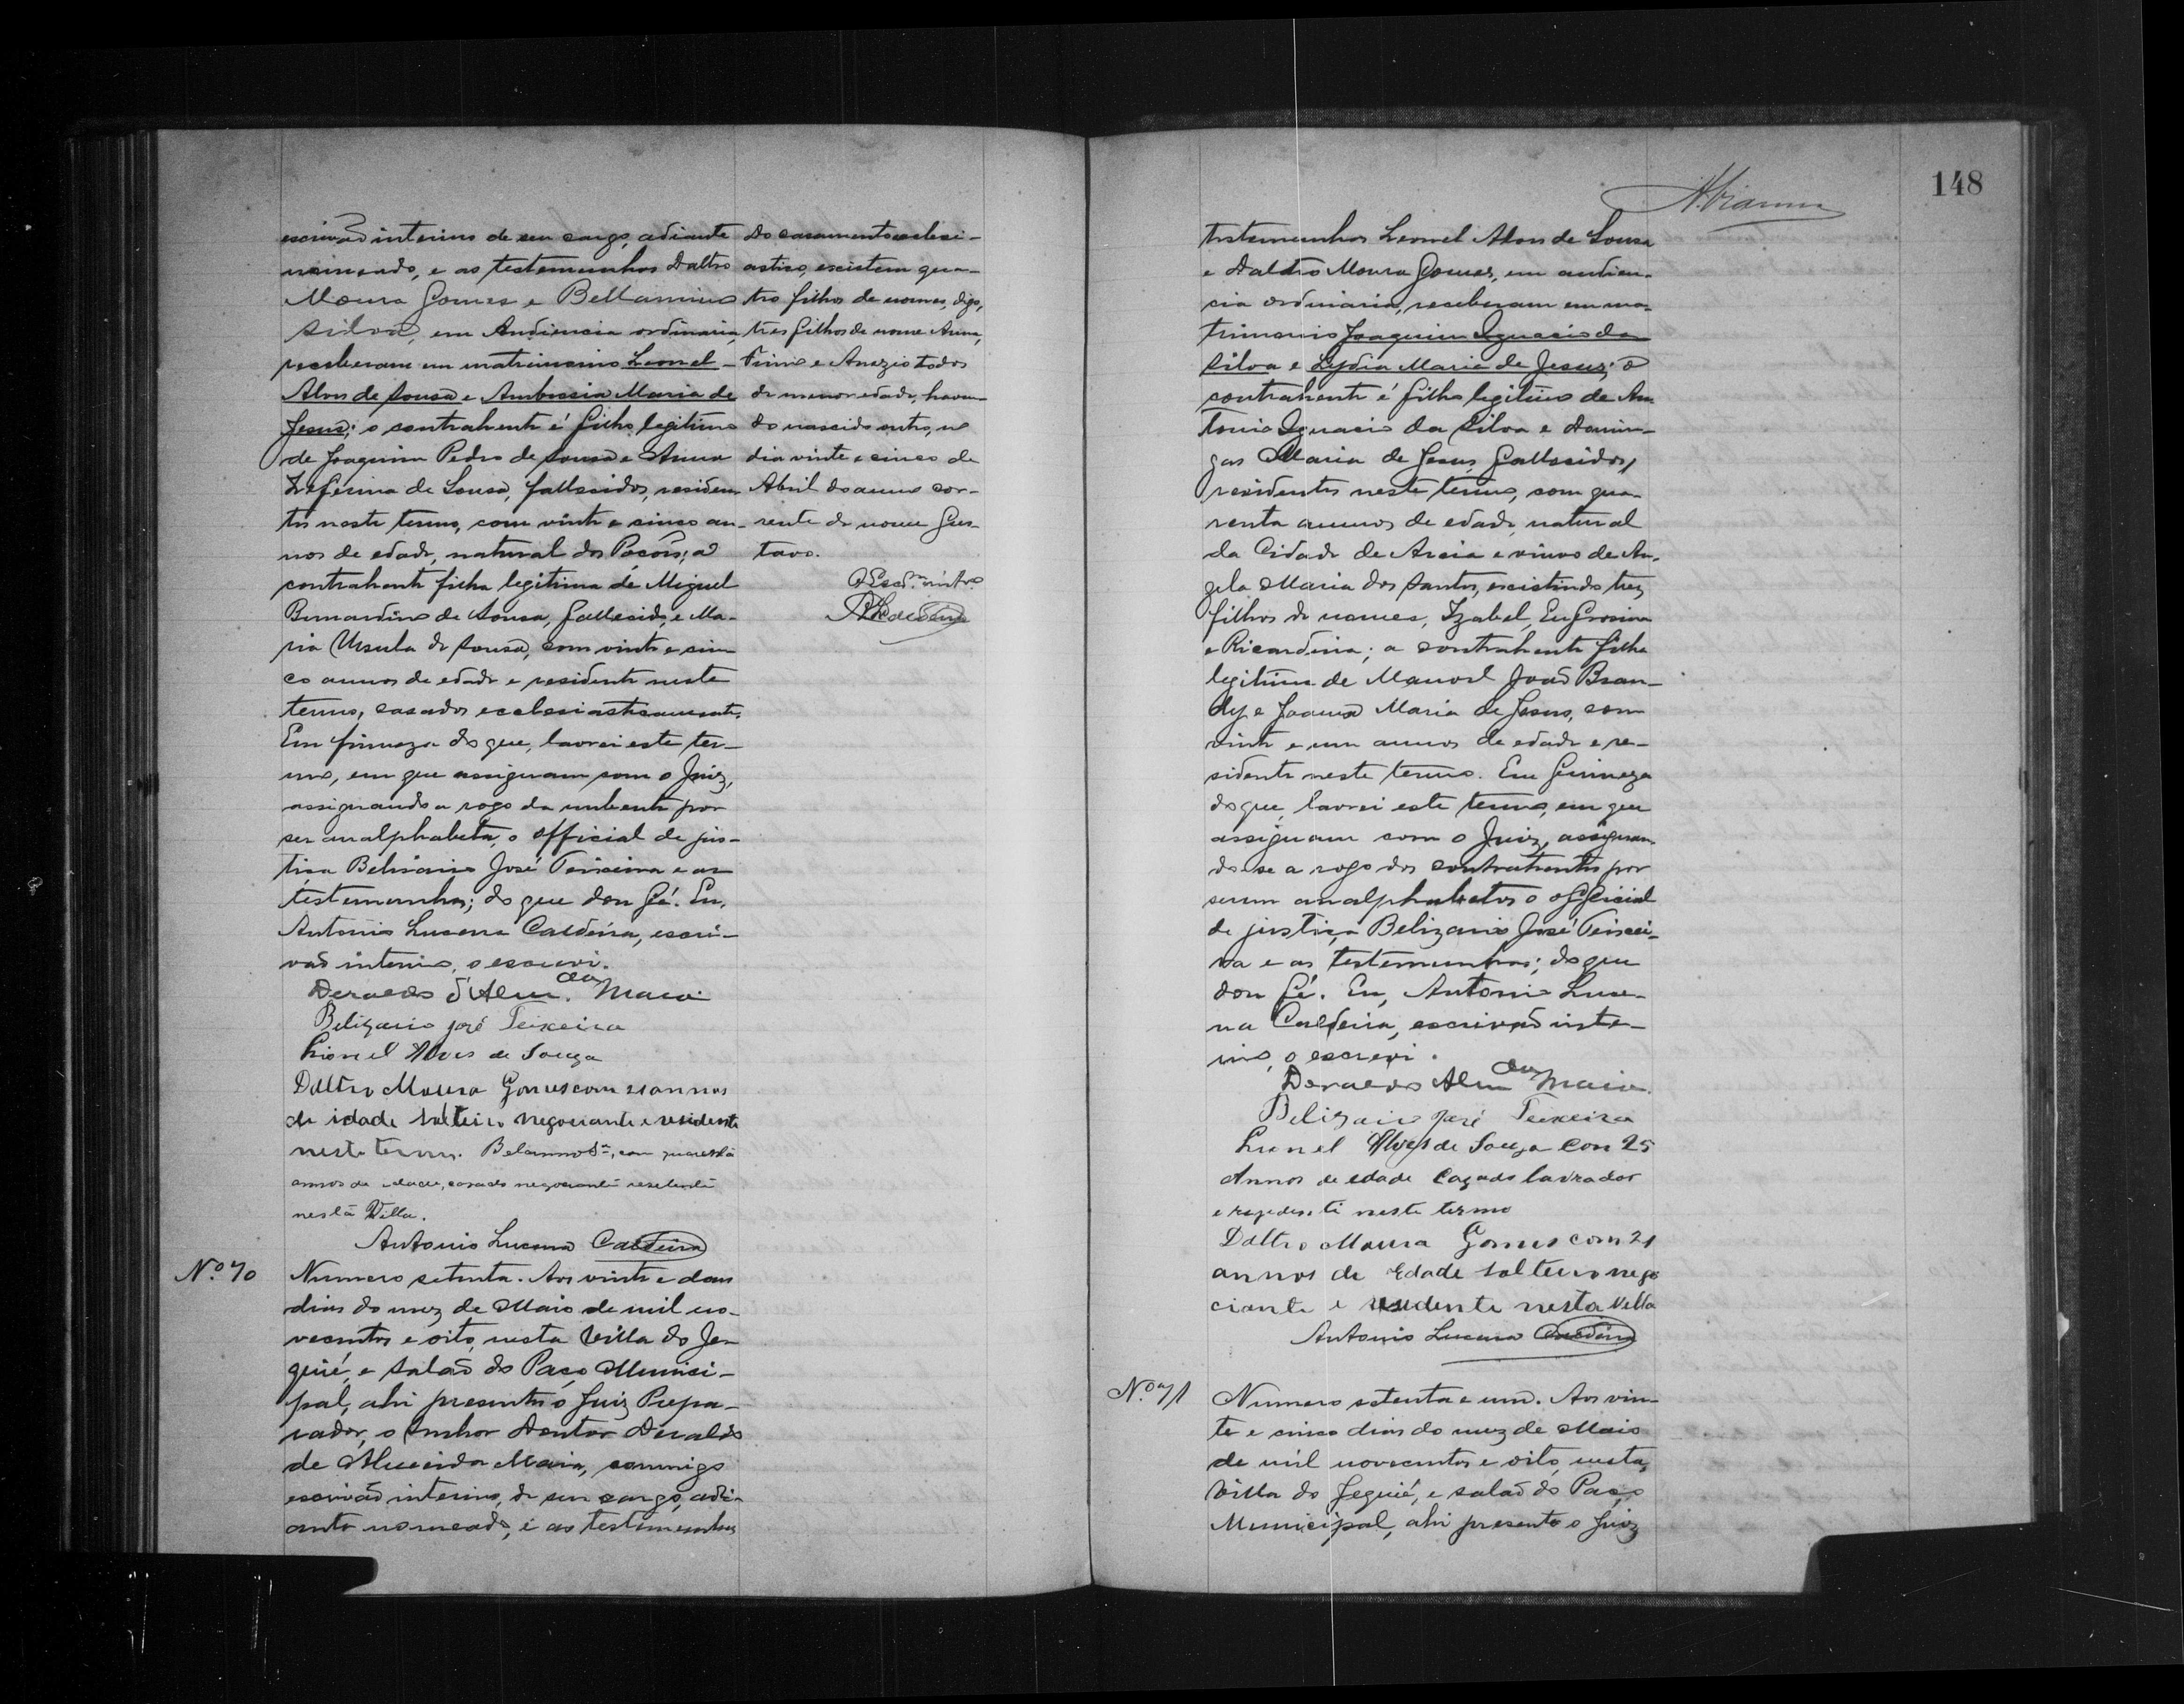 escrivaõ interino de seu cargo, adiante
nomeado, e as testemunhas Daltro
Moura Gomes e Bellarmino
Silva, em Audiencia ordinaria,
receberam em matrimonio Leonel
Alves de Sousa e Ambrosia Maria de
Jesus; o contrahente é filho legitimo
de Joaquim Pedro de Sousa e Anna
Zeferina de Sousa, fallecidos, residen-
tes neste termo, com vinte e cinco an-
nos de edade, natural dos Poções; a
contrahente filha legitima de Miguel
Bernardino de Sousa, fallecido, e Ma-
ria Ursula de Sousa, com vinte e cin
co annos de edade e residente neste
termo, casados ecclesiasticamente.
Em firmeza do que, lavrei este ter-
mo, em que assignam com o Juiz,
assignando a rogo da nubente por
ser analphabeta, o official de jus-
tiça Belisario José Teixeira e as
testemunhas; do que dou fé. Eu,
Antonio Lucena Caldeira, escri-
vaõ interino, o escrevi.
Deraldo d'Alm.da Maia
Belizario José Teixeira
Lionel Alves de Souza
Daltro Moura Gomes com 21 annos
de idade solteiro negociante e residente
neste termo. Belarmino Sa, com quarenta
annos de idade, casado negociante residente
nesta Villa.
Antonio Lucena Caldeira
do casamento eclesi-
astico, existem qua-
tro filhos de nomes, digo,
tres filhos de nome Anna,
Firmo e Anezio todos
de menor edade, haven-
do nascido outro, no
dia vinte e cinco de
Abril do anno cor-
rente de nome Gus-
tavo.
O Escrm intro
ALCaldeira
Nº 70
Numero setenta. Aos vinte e dous
dias do mez de Maio de mil no-
vecentos e oito, nesta Villa do Je-
quié, e salaõ do Paço Munici-
pal, ahi presente o Juiz Prepa-
rador, o Senhor Doutor Deraldo
de Almeida Maia, commigo
escrivaõ interino, de seu cargo, adi-
ante nomeado, e as testemunhas
148
testemunhas Leonel Alves de Sousa
e Daltro Moura Gomes, em audien-
cia ordinaria, receberam em ma-
trimonio Joaquim Ignacio da
Silva e Lydia Maria de Jesus; o
contrahente é filho legitimo de An
tonio Ignacio da Silva e Domin-
gas Maria de Jesus, fallecidos,
residentes neste termo, com qua-
renta annos de edade, natural
da Cidade de Areia e viuvo de An-
gela Maria dos Santos, existindo tres
filhos de nomes, Izabel, Eufrosina
e Ricardina; a contrahente filha
legitima de Manoel João Bran-
dy e Joanna Maria de Jesus, com
vinte e um annos de edade e re-
sidente neste termo. Em firmeza
do que, lavrei este termo, em que
assignam com o Juiz, assignan-
do-se a rogo dos contrahentes por
serem analphabetos o official
de justiça Belizario José Teixei-
ra e as testemunhas; do que
dou fé. Eu, Antonio Luce-
na Caldeira, escrivaõ inte-
rino, o escrevi.
Deraldo Alm.da Maia
Belizario José Teixeira
Lionel Alves de Souza con 25
Annos de edade Cazado lavrador
e rezedente neste termo
Daltro Moura Gomes com 21
annos de Edade solteiro nego
ciante e residente nesta Villa
Antonio Lucena Caldeira
Nº 71
Numero setenta e um. Aos vin-
te e cinco dias do mez de Maio
de mil novecentos e oito, nesta
Villa do Jequié, e salaõ do Paço
Municipal, ahi presente o Juiz